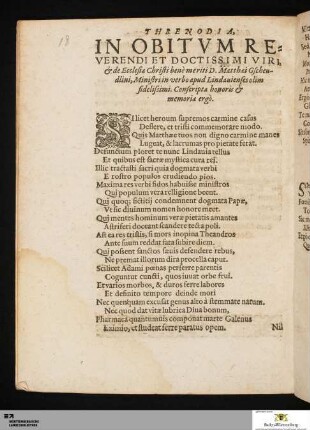 18
THRENODIA,
IN OBITVM RE-
VERENDI ET DOCTISSIMI VIRI,
& de Ecclesia Christi benè meriti D. Matthæi Gscheu-
dlini, Ministri in verbo apud Lindauienses olim
fidelissimi. Conscripta honoris &
memoriæ ergò.
SCilicet heroum supremos carmine casus
Deflere, et tristi commemorare modo.
Quis Matthæe tuos non digno carmine manes
Lugeat, & lacrumas pro pietate fefat.
Defunctum ploret te nunc Lindauia tellus
Et quibus est sacræ mystica cura rei.
Illic tractasti sacri quia dogmata verbi
E rostro populos erudiendo pios.
Maxima res verbi fidos habuisse ministros
Qui populum vera relligione beent.
Qui quoq; fictitij condemnent dogmata Papæ,
Vt sic diuinum nomen honore meet.
Qui mentes hominum veræ pietatis amantes
Astriferi doceant scandere tecta poli.
Ast ea res tristis, si mors inopina Theandros
Ante suum reddat fata subire diem.
Qui possent sanctos sauis defendere rebus,
Ne premat illorum dira procella caput.
Scilicet Adami pœnas perferre parentis
Coguntur cuncti, quos iuuat orbe frui.
Et varios morbos, & duros ferre labores
Et definito tempore deinde mori
Nec quenquam excusat genus alto à stemmate natum.
Nec quod dat vitæ lubrica Diua bonum,
Pharmaca quantumuis componat marte Galenus
Eximio, et studeat ferre paratus opem.
Nil